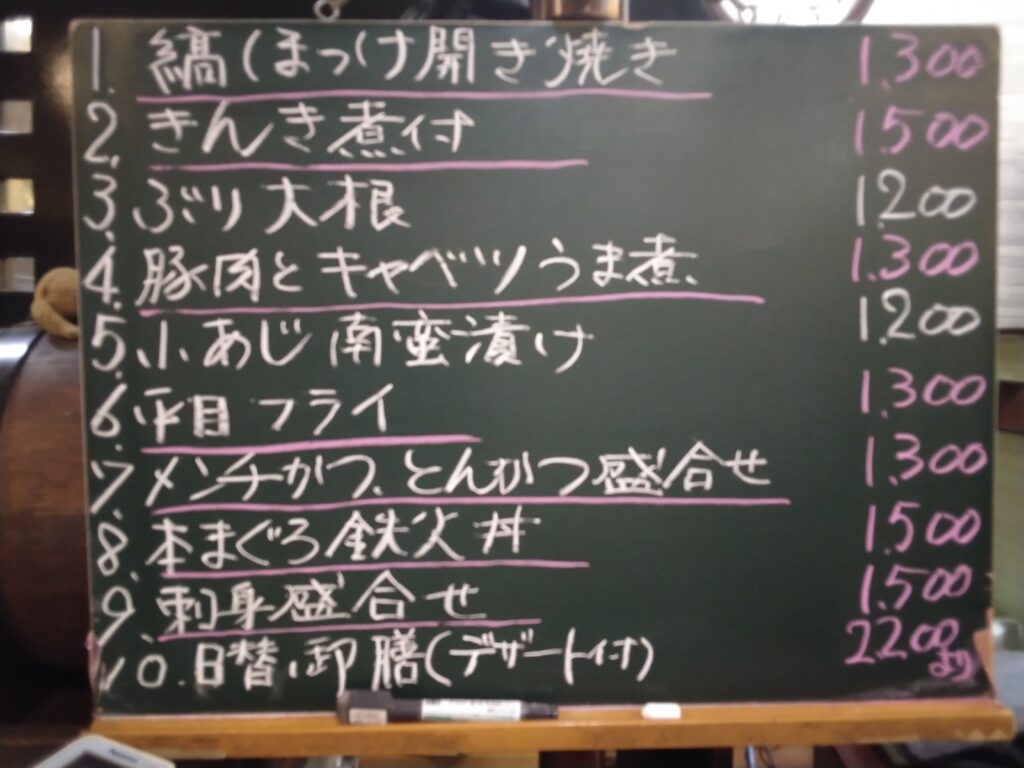 1. 縞ほっけ開き焼き 1.300
2. きんき煮付 1.500
3. ぶり大根 1.200
4. 豚肉とキャベツうま煮 1.300
5. 小あじ南蛮漬け 1.200
6. 平目フライ 1.300
7. メンチかつ、とんかつ盛合せ 1.300
8. 本まぐろ鉄火丼 1.500
9. 刺身盛合せ 1.500
10. 日替御膳(デザート付) 2.200より